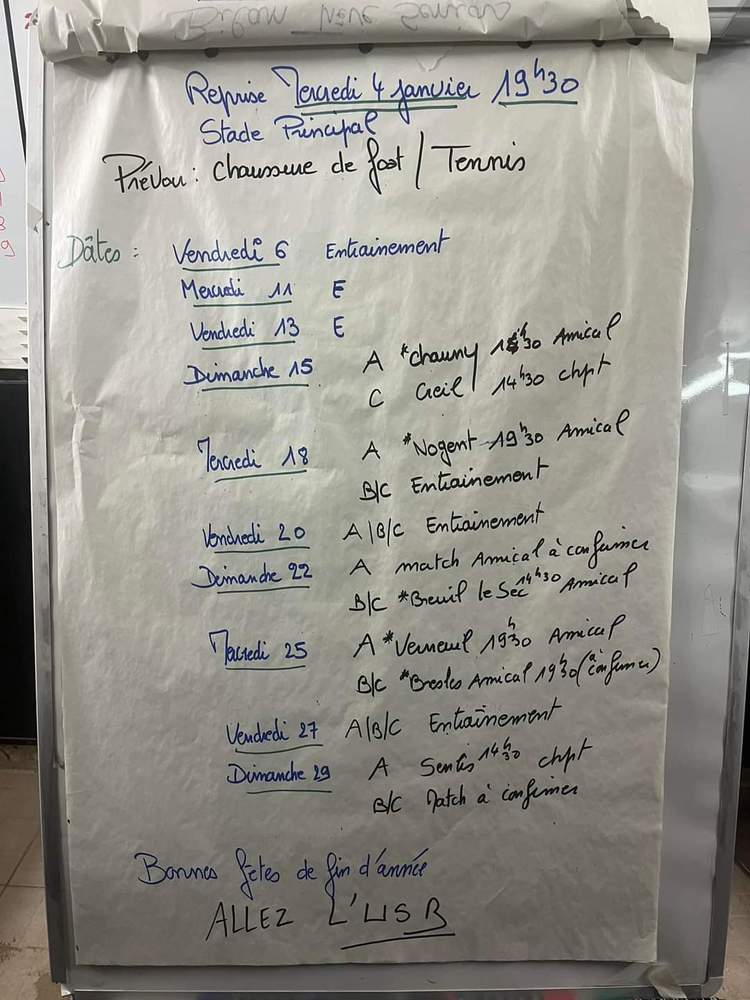 Bilan
Reprise Mercredi 4 janvier 19h30
Stade Principal
Prévoir : Chaussure de foot / Tennis
Dâtes : Vendredi 6 Entrainement
Mercredi 11 E
Vendredi 13 E
Dimanche 15 A *Chauny h30 Amical
C Creil 14h30 chpt
Mercredi 18 A *Nogent 19h30 Amical
B/C Entrainement
Vendredi 20 A/B/C Entrainement
Dimanche 22 A match Amical à confirmer
B/C *Breuil le Sec 14h30 Amical
Mercredi 25 A *Verneuil 19h30 Amical
B/C *Bresles Amical 19h30 (à confirmer)
Vendredi 27 A/B/C Entraînement
Dimanche 29 A Senlis 14h30 chpt
B/C Match à confirmer
Bonnes fêtes de fin d'année
ALLEZ L'USB